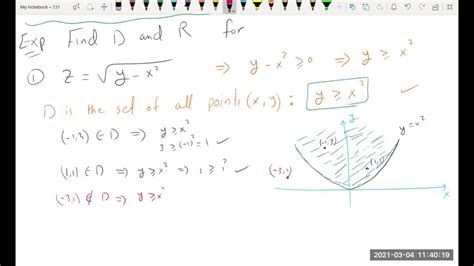 My Notebook - 231
Exp Find D and R for
① z = √(y - x²) ⇒ y - x² ≥ 0 ⇒ y ≥ x²
D is the set of all points (x, y) : y ≥ x² ✓
(-1,3) ∈ D ⇒ y ≥ x²
3 ≥ (-1)² = 1 ✓
(1,1) ∈ D ⇒ y ≥ x² ⇒ 1 ≥ 1² ✓
(-3,1) ∉ D ⇒ y ≥ x²
y
y = x²
(-1,3)
(1,1)
(-3,1)
x
2021-03-04 11:40:19